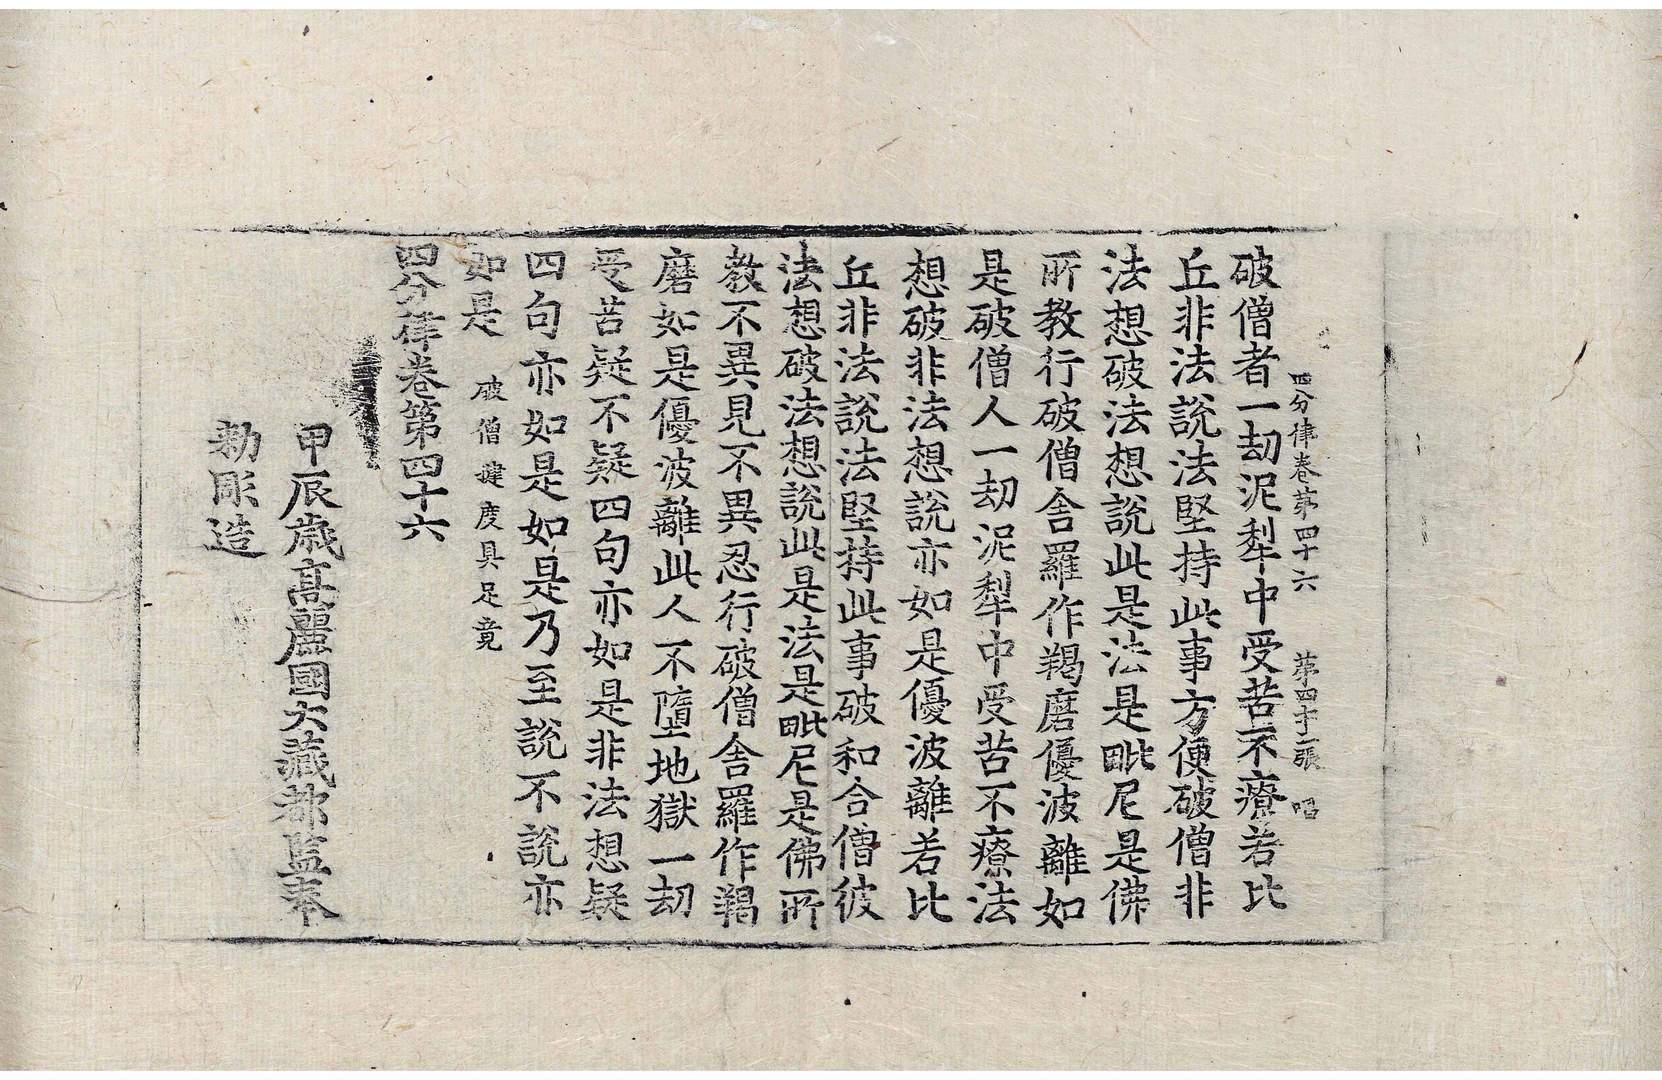 四分律卷第四十六 第四十一張 昭
破僧者一劫泥犁中受苦不療若比
丘非法說法堅持此事方便破僧非
法想破法想說此是法是毗尼是佛
所教行破僧舍羅作羯磨優波離如
是破僧人一劫泥犁中受苦不療法
想破非法想說亦如是優波離若比
丘非法說法堅持此事破和合僧彼
法想破法想說此是法是毗尼是佛所
教不異見不異忍行破僧舍羅作羯
磨如是優波離此人不墮地獄一劫
受苦疑不疑四句亦如是非法想疑
四句亦如是如是乃至說不說亦
如是 破僧揵度具足竟
四分律卷第四十六
甲辰歲高麗國大藏都監奉
勅彫造